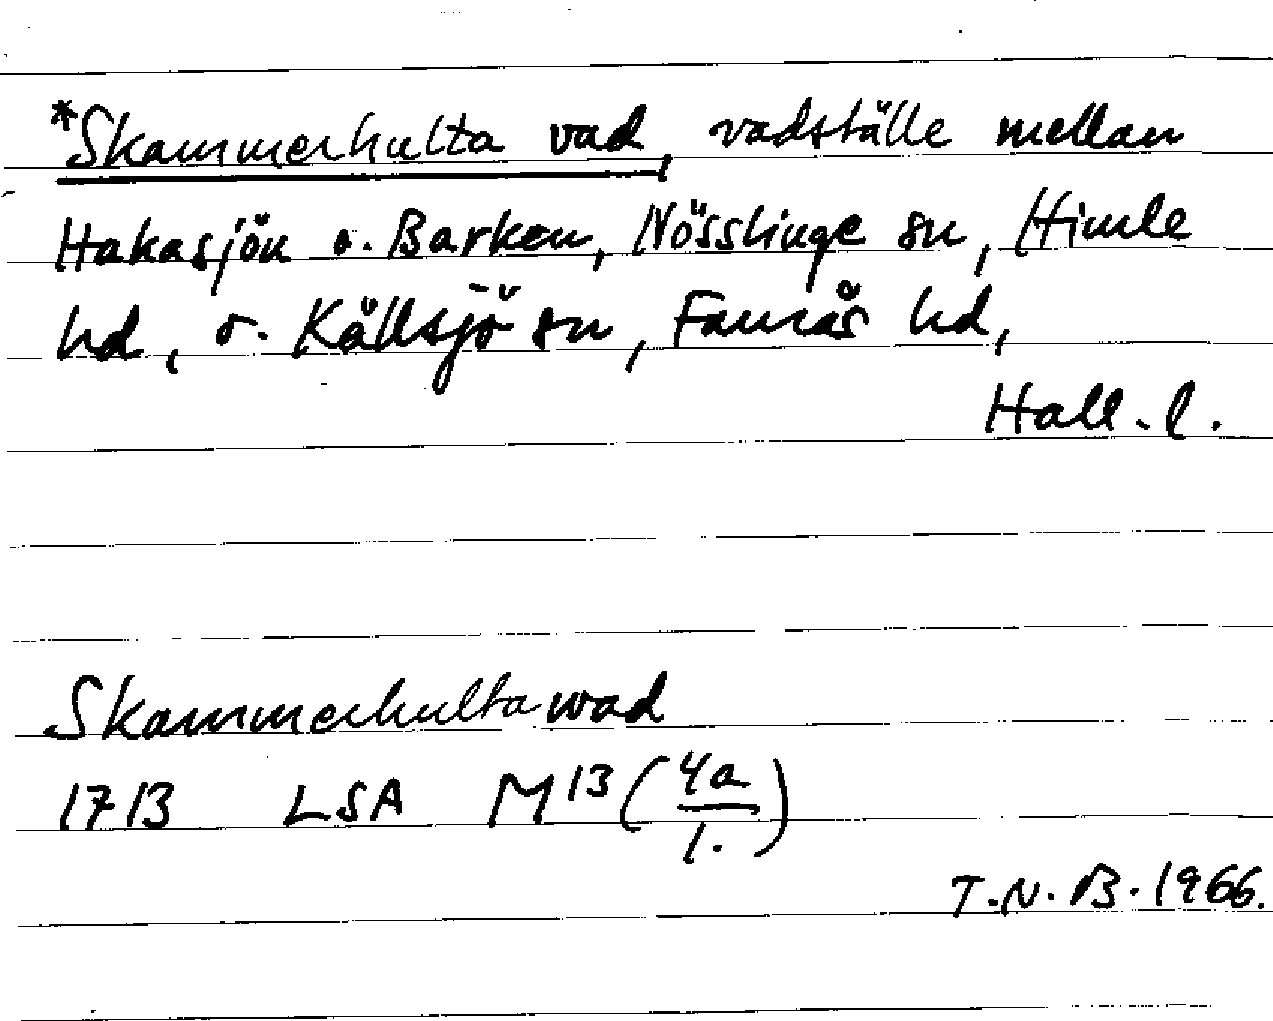 *Skammerhulta vad, vadställe mellan
Hakasjön o. Barken, Nösslinge sn, Himle
hd, o. Källsjö sn, Faurås hd,
Hall. l.
Skammerhulta wad
1713 LSA M13 (4a/1.)
T.N.B. 1966.